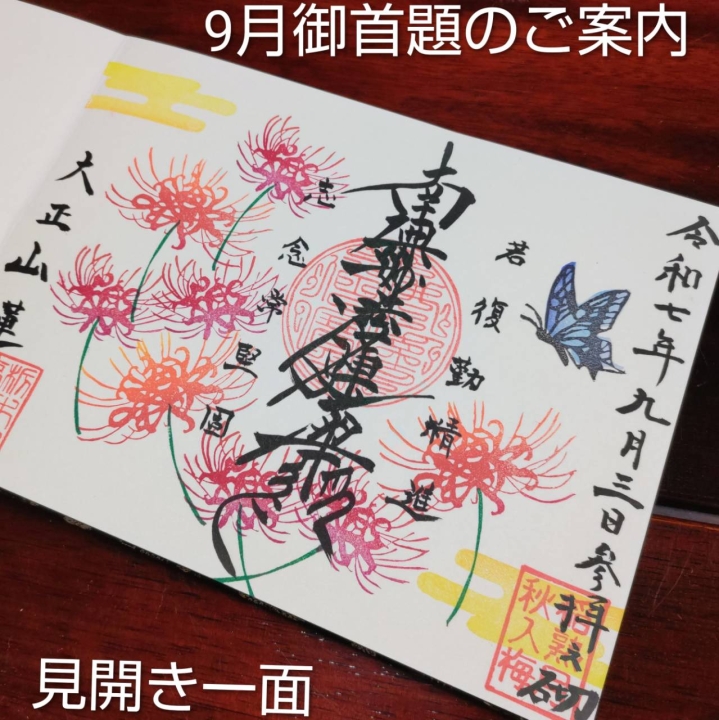 9月御首題のご案内
令和七年九月三日参拝
若復勤精進
南無妙法蓮華経
志念常堅固
大正山
見開き一面